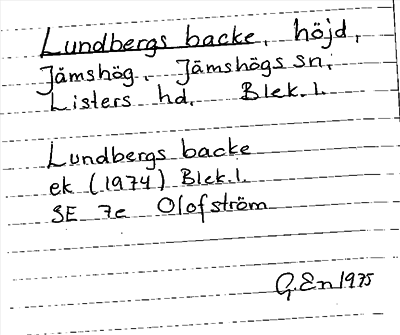 Lundbergs backe, höjd,
Jämshög, Jämshögs sn,
Listers hd, Blek. l.
Lundbergs backe
ek (1974) Blek. l.
3E 7e Olofström
G. En 1975